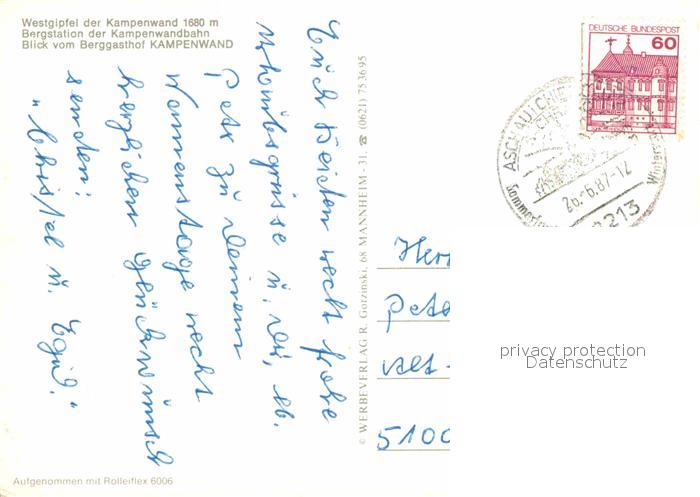 Westgipfel der Kampenwand 1680 m
Bergstation der Kampenwandbahn
Blick vom Berggasthof KAMPENWAND
Euch beiden recht frohe
Urlaubsgrüsse u. Dir, lb.
Peter zu Deinem
Namenstage recht
herzlichen Glückwünsch
senden;
"Christel u. Egid."
© WERBEVERLAG R. Gotzinski, 68 MANNHEIM - 31, ☎ (0621) 75 36 95
DEUTSCHE BUNDESPOST
60
ASCHAU I. CHIE
26.-6.87-12
213
Herr
Pete
5100
privacy protection
Datenschutz
Aufgenommen mit Rolleiflex 6006